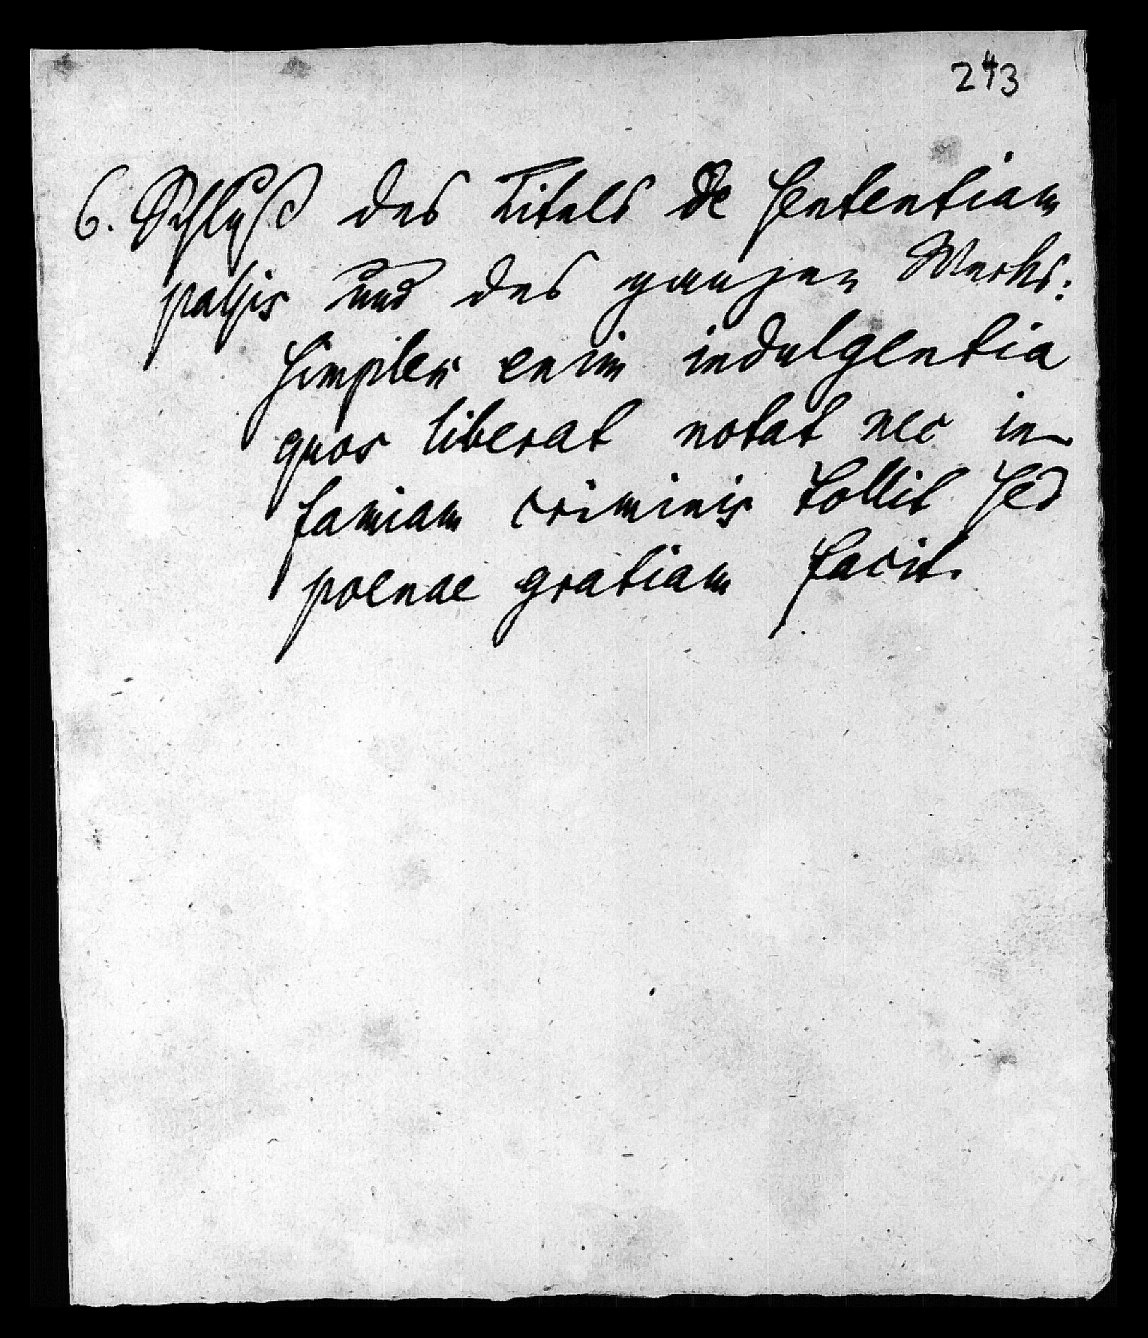 243
6. Schluß des Titels de sententiam
passis und des ganzen Werks:
simplex enim indulgentia
quos liberat notat nec in
famiam criminis tollit sed
poenae gratiam facit.